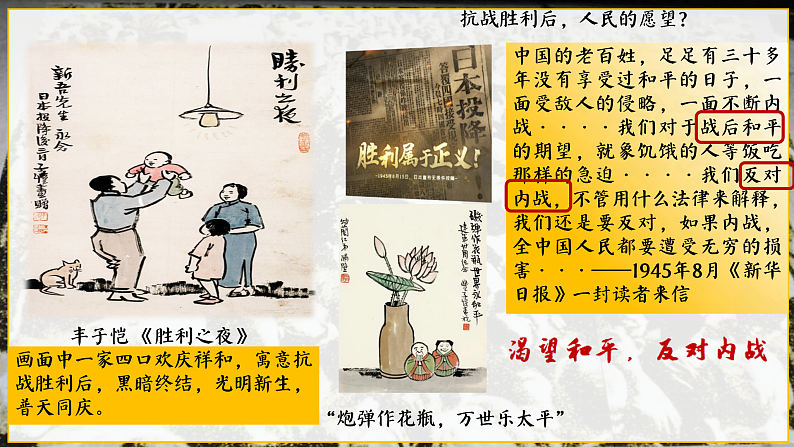 抗战胜利后，人民的愿望？
勝利之夜
新吾先生 永念
日本投降後二日子愷畫贈
日本投降
胜利属于正义！
-1945年8月15日，日本宣布无条件投降-
中国的老百姓，足足有三十多
年没有享受过和平的日子，一
面受敌人的侵略，一面不断内
战····我们对于战后和平
的期望，就象饥饿的人等饭吃
那样的急迫····我们反对
内战，不管用什么法律来解释，
我们还是要反对，如果内战，
全中国人民都要遭受无穷的损
害···——1945年8月《新华
日报》一封读者来信
渴望和平，反对内战
丰子恺 《胜利之夜》
画面中一家四口欢庆祥和，寓意抗
战胜利后，黑暗终结，光明新生，
普天同庆。
“炮弹作花瓶，万世乐太平”